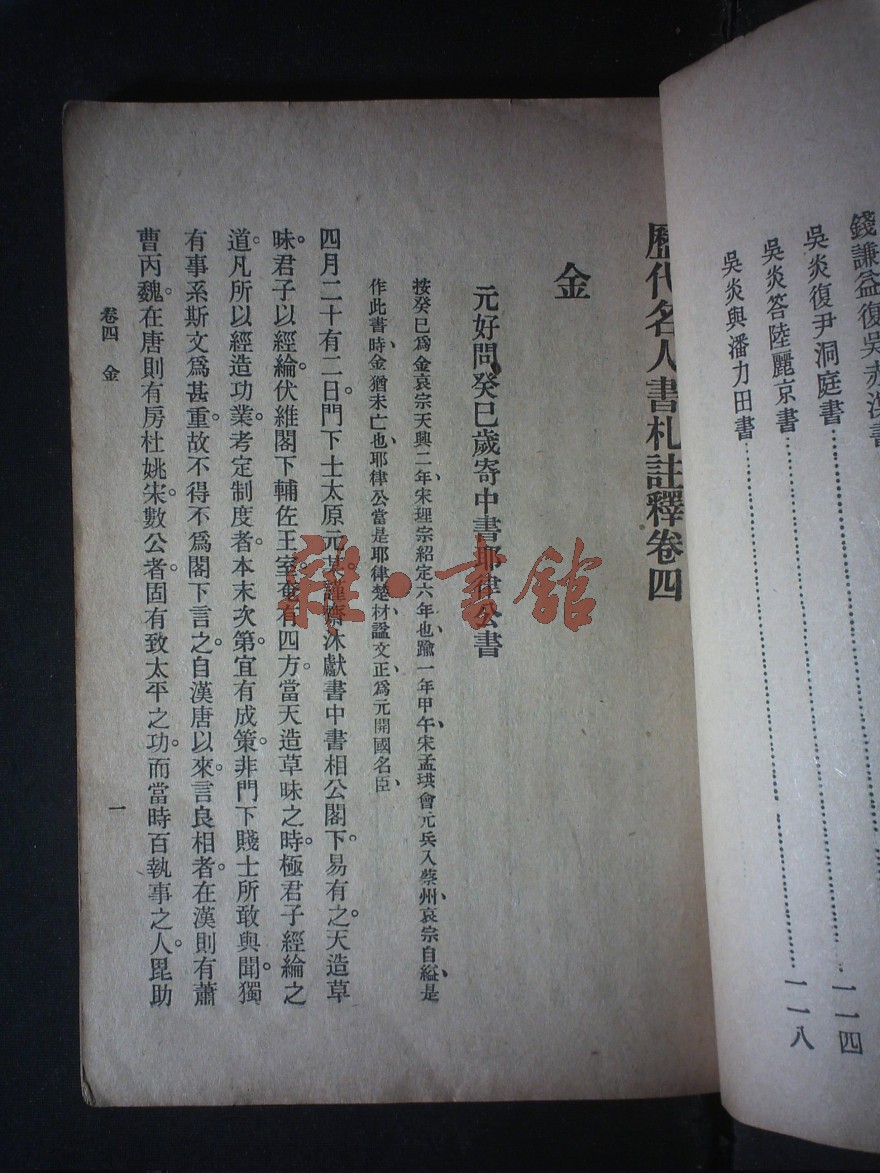 錢謙益復吳赤溟書
吳炎復尹洞庭書……………一一四
吳炎答陸麗京書……………
吳炎與潘力田書……………一一八
歷代名人書札註釋卷四
金
元好問癸巳歲寄中書耶律公書
按癸巳爲金哀宗天興二年、宋理宗紹定六年也、踰一年甲午、宋孟珙會元兵入蔡州、哀宗自縊、是
作此書時、金猶未亡也、耶律公當是耶律楚材、諡文正、爲元開國名臣、
四月二十有二日。門下士太原元某。謹齋沐獻書中書相公閣下。易有之。天造草
昧。君子以經綸。伏維閣下輔佐王室。奄有四方。當天造草昧之時。極君子經綸之
道。凡所以經造功業。考定制度者。本末次第。宜有成策。非門下賤士所敢與聞。獨
有事系斯文爲甚重。故不得不爲閣下言之。自漢唐以來。言良相者。在漢則有蕭
曹丙魏。在唐則有房杜姚宋。數公者。固有致太平之功。而當時百執事之人。毘助
卷四　金
一
雜·書館